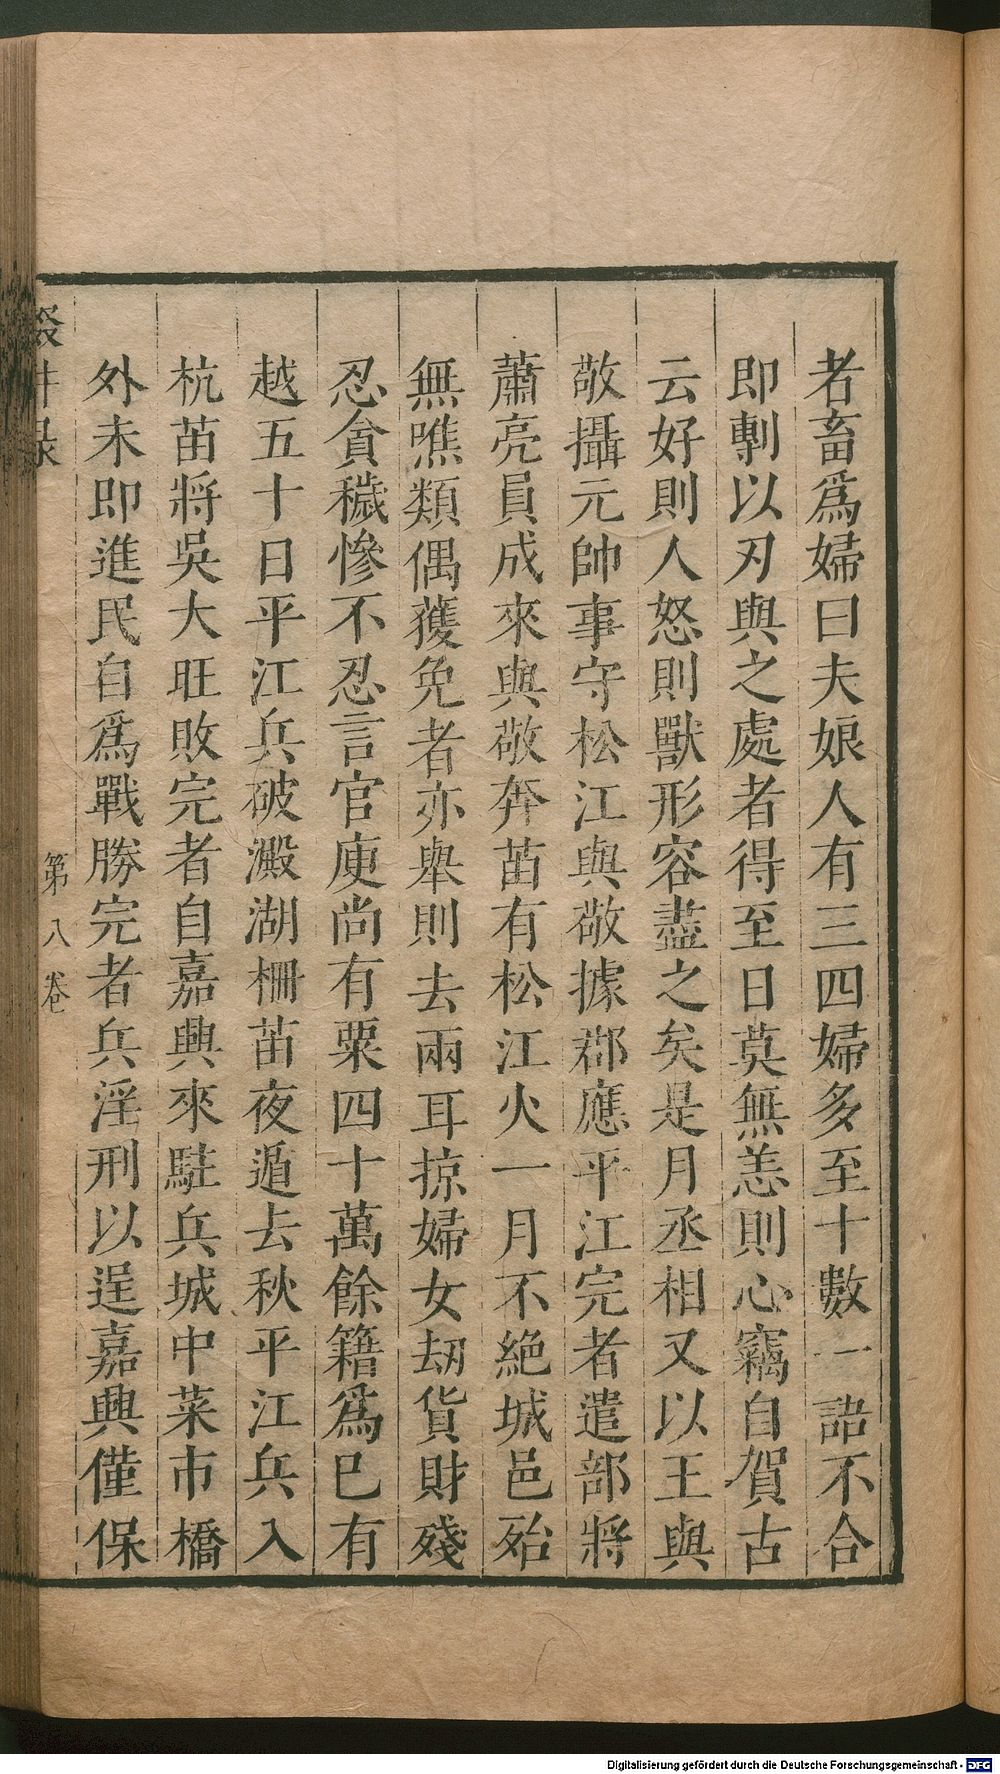 者畜爲婦曰夫娘人有三四婦多至十數一語不合
即剸以刃與之處者得至日莫無恙則心竊自賀古
云好則人怒則獸形容盡之矣是月丞相又以王與
敬攝元帥事守松江與敬據郡應平江完者遣部將
蕭亮員成來與敬奔苗有松江火一月不絕城邑殆
無噍類偶獲免者亦舉則去兩耳掠婦女劫貨財殘
忍貪穢慘不忍言官庾尚有粟四十萬餘籍爲已有
越五十日平江兵破澱湖柵苗夜遁去秋平江兵入
杭苗將吳大旺敗完者自嘉興來駐兵城中菜市橋
外未即進民自爲戰勝完者兵淫刑以逞嘉興僅保
第八卷
Digitalisierung gefördert durch die Deutsche Forschungsgemeinschaft - DFG